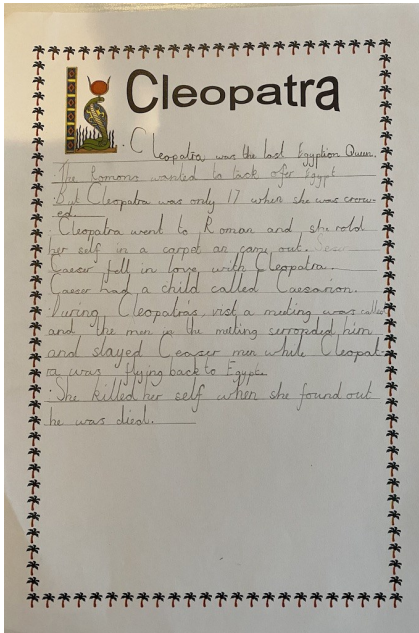 Cleopatra
·Cleopatra was the last Egyption Queen.
·The Romons wanted to tack ofer Egypt
·But Cleopatra was only 17 when she was crow-
ed.
·Cleopatra went to Roman and she rold
her self in a carpet an cam out.
Caeser fell in love with Cleopatra.
Caeser had a child called Caesarion.
·During Cleopatra's visit a meeting was called
and the men in the metting serronded him
and slayed Ceaser men while Cleopat-
ra was flying back to Egypt.
·She killed her self when she found out
he was died.